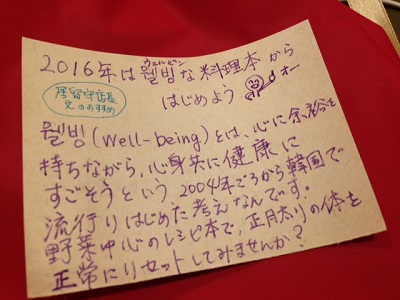 2016年は웰빙な料理本から
ウェルビン
はじめよう
オー
居留守店長
文のおすすめ
웰빙(Well-being)とは、心に余裕を
持ちながら、心身共に健康に
すごそうという2004年ごろから韓国で
流行りはじめた考えなんです。
野菜中心のレシピ本で、正月太りの体を
正常にリセットしてみませんか?